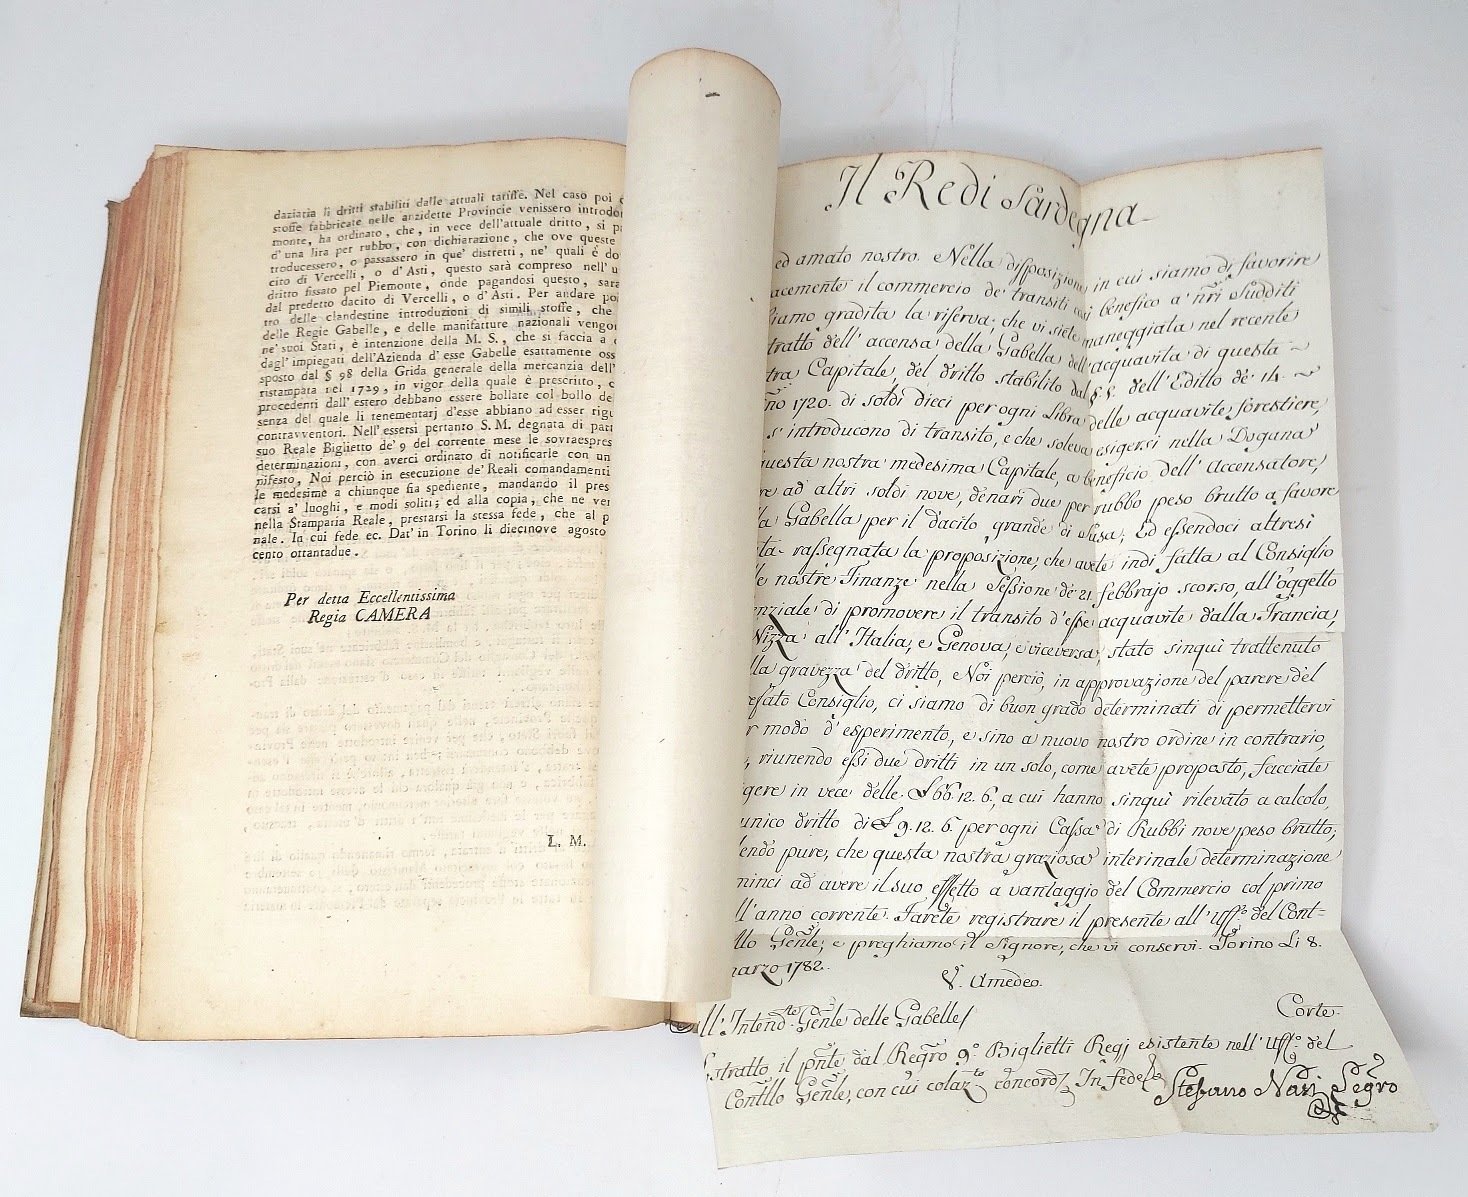 daziaria li dritti stabiliti dalle attuali tariffe. Nel caso poi
stoffe fabbricate nelle anzidette Provincie venissero introdo
monte, ha ordinato, che, in vece dell'attuale dritto, si p
d'una lira per rubbo, con dichiarazione, che ove queste
troducessero, o passassero in que' distretti, ne' quali è do
cito di Vercelli, o d'Asti, questo sarà compreso nell'u
dritto fissato pel Piemonte, onde pagandosi questo, sara
dal predetto dacito di Vercelli, o d'Asti. Per andare po
tro delle clandestine introduzioni di simili stoffe, che
delle Regie Gabelle, e delle manifatture nazionali vengo
ne' suoi Stati, è intenzione della M. S., che si faccia a
dagl'impiegati dell'Azienda d'esse Gabelle esattamente oss
sposto dal § 98 della Grida generale della mercanzia dell'
ristampata nel 1729, in vigor della quale è prescritto, c
procedenti dall'estero debbano essere bollate col bollo de
senza del quale li tenementarj d'esse abbiano ad esser rigu
contravventori. Nell'essersi pertanto S. M. degnata di pa
suo Reale Biglietto de' 9 del corrente mese le sovraespres
determinazioni, con averci ordinato di notificarle con un
nifesto, Noi perciò in esecuzione de' Reali comandamenti
le medesime a chiunque sia spediente, mandando il pres
carsi a' luoghi, e modi soliti; ed alla copia, che ne ver
nella Stamparia Reale, prestarsi la stessa fede, che al p
nale. In cui fede ec. Dat' in Torino li diecinove agosto
cento ottantadue.
Per detta Eccellentissima
Regia CAMERA
L. M.
Il Re di Sardegna
ed amato nostro. Nella disposizione in cui siamo di favorire
acemente il commercio de' transiti così benefico a' nr̃i Sudditi
iamo gradita la riserva, che vi siete maneggiata nel recente
tratto dell'accensa della Gabella dell'acquavita di questa
tra Capitale, del dritto stabilito dal §. 5. dell'Editto de' 14.
1720. di soldi dieci per ogni Libra delle acquavite forestiere,
s'introducono di transito, e che soleva esigersi nella Dogana
questa nostra medesima Capitale, a beneficio dell'Accensatore,
re ad altri soldi nove, denari due per rubbo peso brutto a favore
la Gabella per il dacito grande di Susa; Ed essendoci altresì
ta rassegnata la proposizione, che avete indi fatta al Consiglio
le nostre Finanze nella Sessione de' 21. febbrajo scorso, all'oggetto
enziale di promovere il transito d'esse acquavite dalla Francia,
Nizza all'Italia, e Genova, e viceversa, stato sinquì trattenuto
lla gravezza del dritto, Noi perciò, in approvazione del parere del
efato Consiglio, ci siamo di buon grado determinati di permettervi
r modo d'esperimento, e sino a nuovo nostro ordine in contrario,
, riunendo essi due dritti in un solo, come avete proposto, facciate
igere in vece delle £ 66. 12. 6, a cui hanno sinquì rilevato a calcolo,
unico dritto di £ 9. 12. 6. per ogni Cassa di Rubbi nove peso brutto;
endo pure, che questa nostra graziosa interinale determinazione
minci ad avere il suo effetto a vantaggio del Commercio col primo
ll'anno corrente. Farete registrare il presente all'Uff.° del Cont=
llo Gen̄le; e preghiamo il Signore, che vi conservi. Torino Li 8.
marzo 1782.
V. Amedeo.
Corte.
ll'Intend.te Gen̄le delle Gabelle/
stratto il pn̄te dal Regr̃o 9.° Biglietti Regj esistente nell'Uff.° del
Contllo Gen̄le, con cui colaz.to concord. In fede
Stefano Nasi Segro